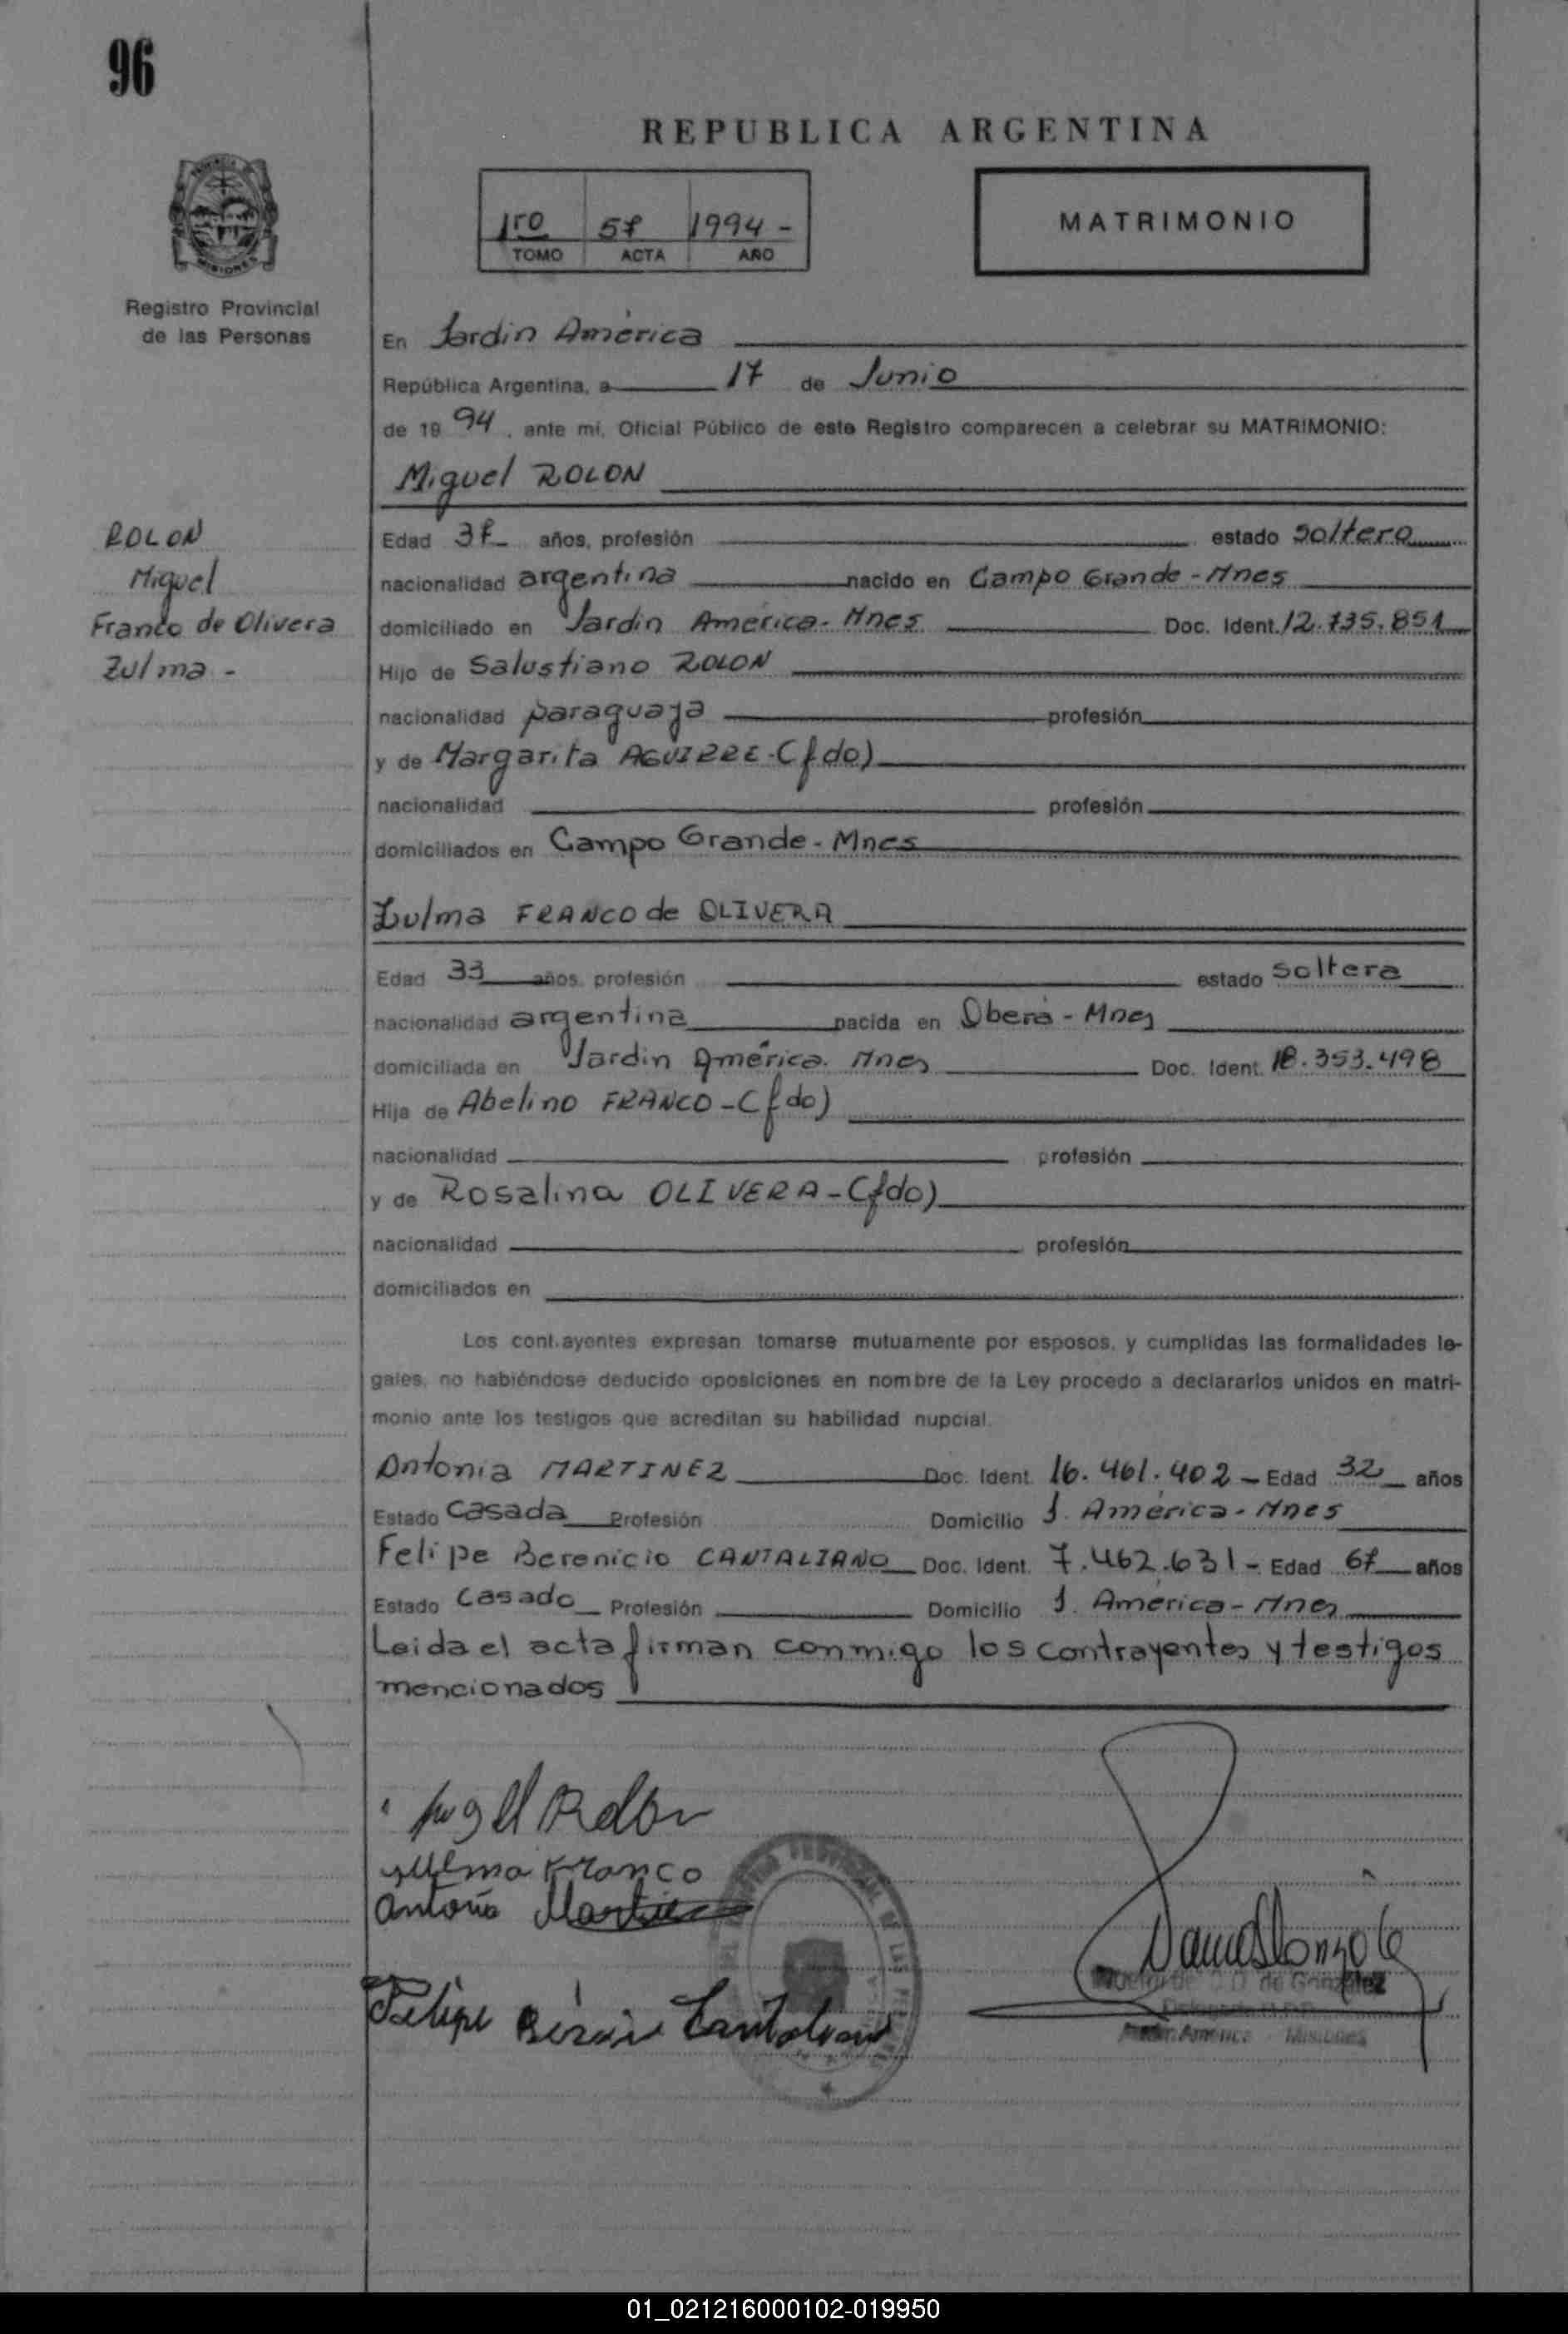 96
REPUBLICA ARGENTINA
1ro 57 1994 -
TOMO ACTA AÑO
MATRIMONIO
MISIONES
Registro Provincial
de las Personas
En Jardin América
República Argentina, a 17 de Junio
de 19 94, ante mí, Oficial Público de este Registro comparecen a celebrar su MATRIMONIO:
Miguel ROLON
ROLON
Miguel
Franco de Olivera
Zulma -
Edad 37 años, profesión estado soltero
nacionalidad argentina nacido en Campo Grande - Mnes
domiciliado en Jardin América - Mnes Doc. Ident. 12.735.851
Hijo de Salustiano ROLON
nacionalidad paraguaya profesión
y de Margarita AGUIRRE - (fdo)
nacionalidad profesión
domiciliados en Campo Grande - Mnes
Zulma FRANCO de OLIVERA
Edad 33 años, profesión estado soltera
nacionalidad argentina nacida en Oberá - Mnes
domiciliada en Jardin América - Mnes Doc. Ident. 18.353.498
Hija de Abelino FRANCO - (fdo)
nacionalidad profesión
y de Rosalina OLIVERA - (fdo)
nacionalidad profesión
domiciliados en
Los contrayentes expresan tomarse mutuamente por esposos, y cumplidas las formalidades le-
gales, no habiéndose deducido oposiciones en nombre de la Ley procedo a declararlos unidos en matri-
monio ante los testigos que acreditan su habilidad nupcial.
Antonia MARTINEZ Doc. Ident. 16.461.402 - Edad 32 años
Estado Casada Profesión Domicilio J. América - Mnes
Felipe Berenicio CANTALIANO Doc. Ident. 7.462.631 - Edad 67 años
Estado Casado Profesión Domicilio J. América - Mnes
Leida el acta firman conmigo los contrayentes y testigos
mencionados
Rolon
Franco
Antonia Martinez
Felipe
de González
Misiones
01_021216000102-019950